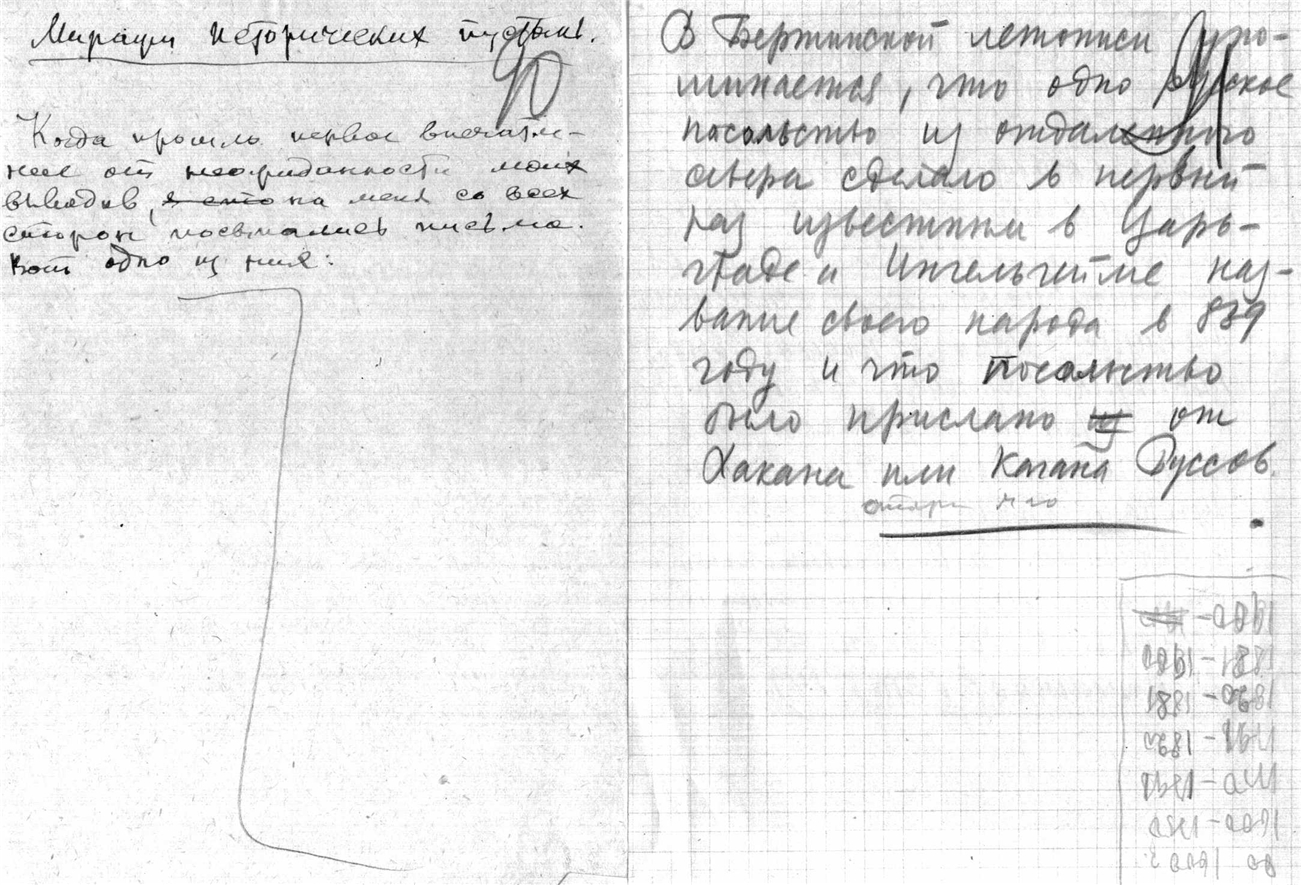 Миражи исторических пустынь.
90
Когда прошло первое впечатле-
ние от неожиданности моих
выводов, на меня со всех
сторон посыпались письма.
Вот одно из них:
В Бертинской летописи упо-
минается, что одно русское
посольство из отдаленного
севера сделало в первый
раз известным в Царь-
граде и Ингельгейме наз-
вание своего народа в 839
году и что посольство
было прислано из от
Хакана или Кагана Руссов.